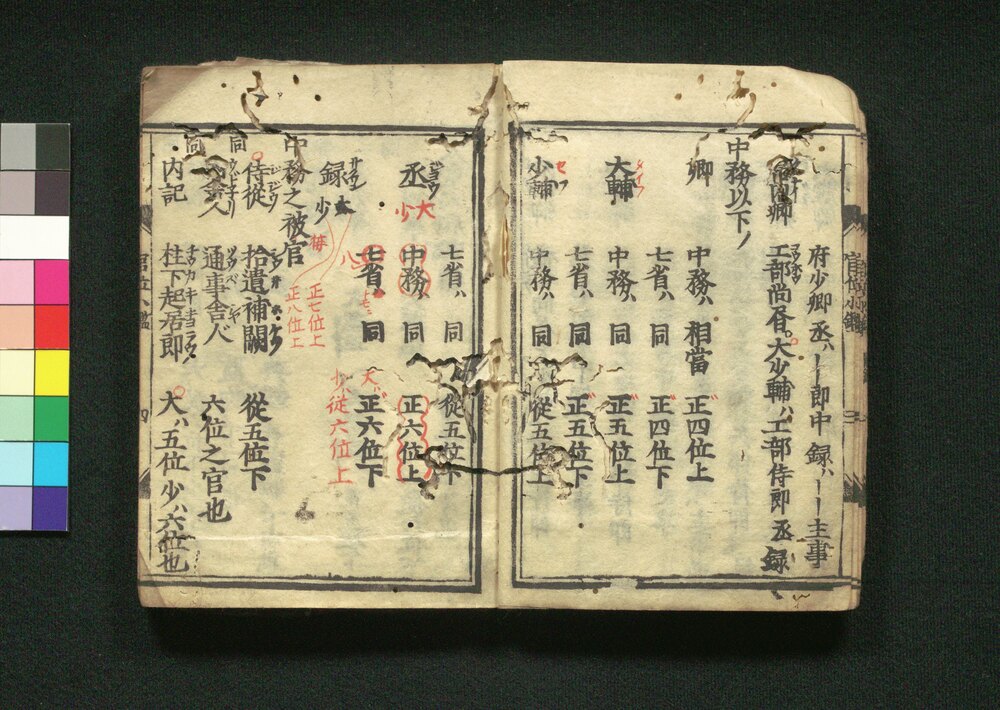 府少卿丞ハ｜｜郎中 録ハ｜｜主事
宮内卿 工部尚書。大少輔ハ工部侍郎 丞 録
中務以下ノ
卿 中務ハ 相當 正四位上
七省ハ 同 正四位下
大輔 中務ハ 同 正五位上
七省ハ 同 正五位下
少輔 中務ハ 同 從五位上
七省ハ 同 從五位下
丞 大少 中務ハ 同 正六位上
七省ハ 同 正六位下
少ハ 従六位上
録 大少
正七位上
正八位上
中務之被官
侍從 拾遺補闕 從五位下
同 内舎人 通事舎人 六位之官也
同 内記 柱下起居郎 大ハ五位少ハ六位也